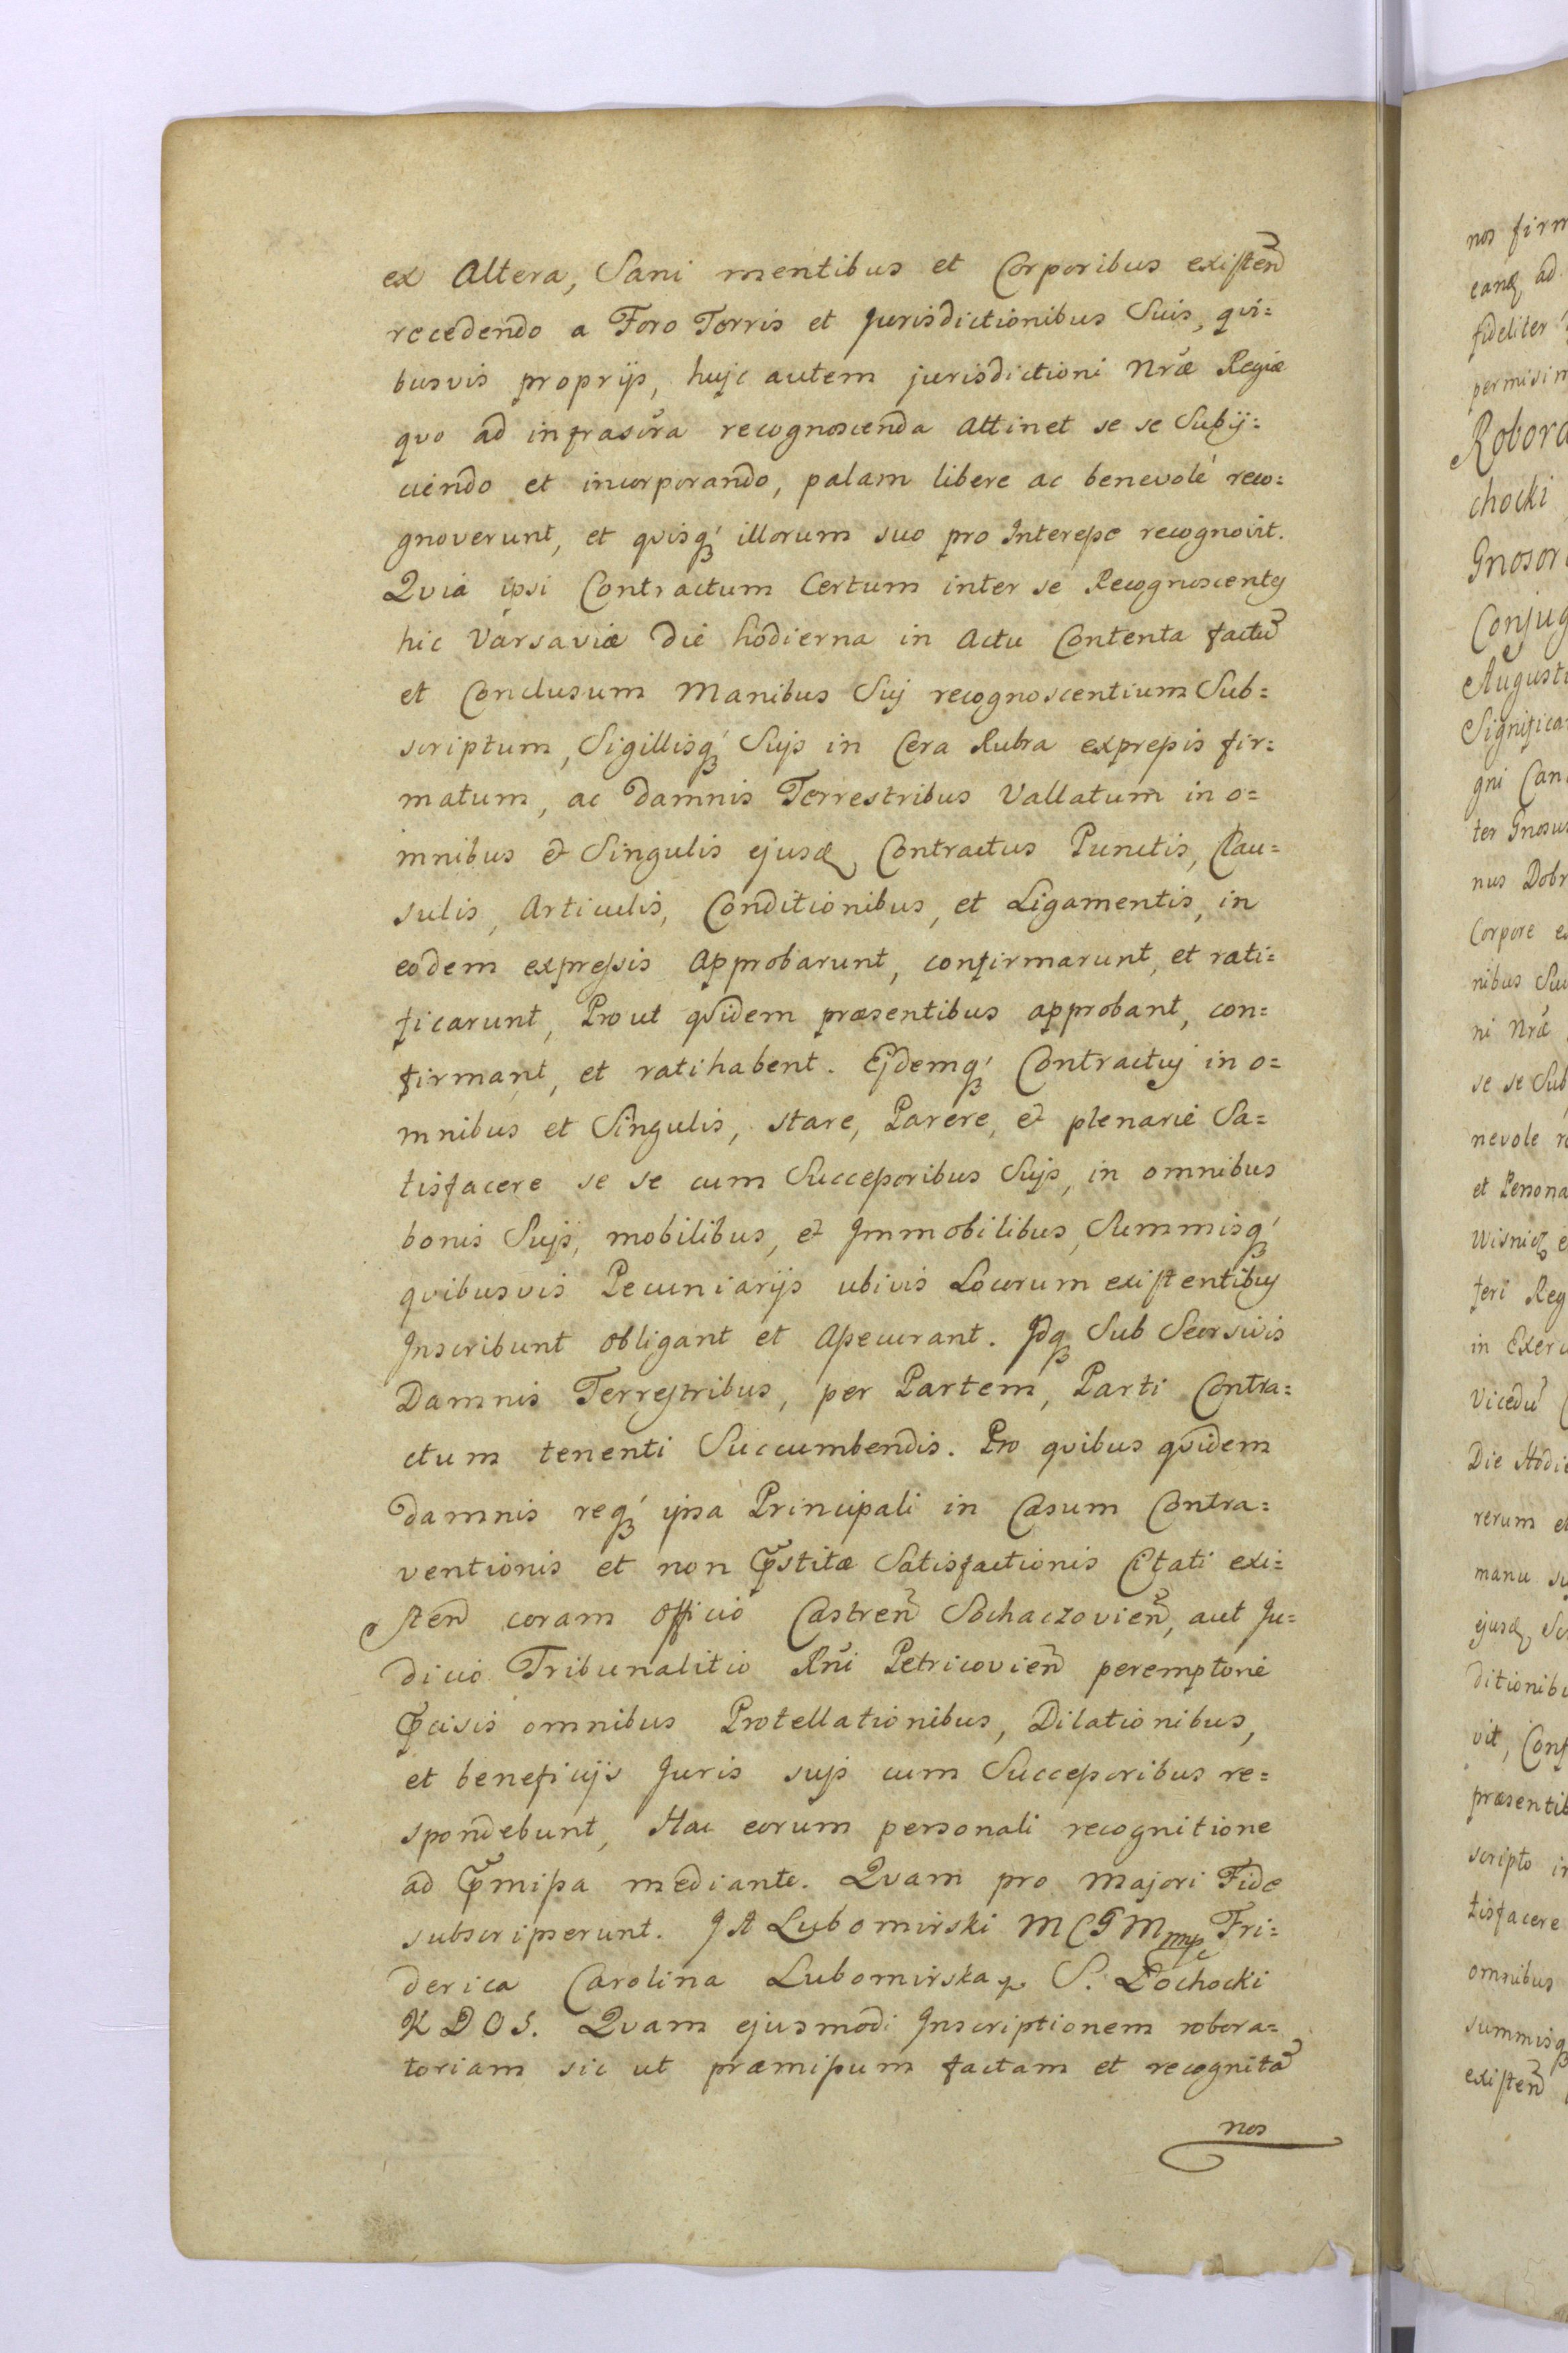 ex Altera, Sani mentibus et Corporibus existen̄
recedendo a Foro Terris et Jurisdictionibus Suis, qvi=
busvis proprijs, hujc autem jurisdictioni Nr̃æ Regiæ
qvo ad infrascr̃a recognoscenda Attinet se se Subij=
ciendo et incorporando, palam libere ac benevolé reco=
gnoverunt, et qvisq́ illorum suo pro Interesse recognovit.
Qvia ipsi Contractum Certum inter se Recognoscentes
hic Varsaviæ Die hodierna in Actu Contenta factũ
et Conclusum Manibus Suis recognoscentium Sub=
scriptum, Sigillisq́ Suis in Cera Rubra expressis fir=
matum, ac Damnis Terrestribus Vallatum in o=
mnibus et Singulis ejusd Contractus Punctis, Clau=
sulis, Articulis, Conditionibus, et Ligamentis, in
eodem expressis Approbarunt, confirmarunt, et rati=
ficarunt, Prout qvidem præsentibus approbant, con=
firmant, et ratihabent. Ejdemq́ Contractuj in o=
mnibus et Singulis, stare, Parere, et plenarié Sa=
tisfacere se se cum Successoribus Sujs, in omnibus
bonis Sujs, mobilibus, et Immobilibus, Summisq́
qvibusvis Pecuniarijs ubivis Locorum existentibus
Inscribunt obligant et Assecurant. Idq Sub Seorsivis
Damnis Terrestribus, per Partem, Parti Contra=
ctum tenenti Succumbendis. Pro qvibus qvidem
damnis req́ ipsa Principali in Casum Contra=
ventionis et non P̃stitæ Satisfactionis Citati exi=
sten̄ coram Officio Castren̄ Sochaczovien̄, aut Ju=
dicio Tribunalitio Rñi Petricovien̄ peremptorié
P̃cisis omnibus Protellationibus, Dilationibus,
et beneficijs Juris sujs cum Successoribus re=
spondebunt, Hac eorum personali recognitione
ad P̃missa mediante. Qvam pro majori Fide
subscripserunt. J A Lubomirski M C G M mp Fri=
derica Carolina Lubomirska S. Łochocki
K D O S. Qvam ejusmodi Inscriptionem robora=
toriam sic ut præmissum factam et recognitã
nos
nos firm
eanq ad
fideliter
permisim
Robora
chocki
Gnosor
Conjug
Augusti
Significa
gni Can
ter Gnosus
nus Dobr
Corpore e
nibus Su
ni Nr̃æ
se se Sub
nevole r
et Persona
Wisnicz e
teri Reg
in Exerc
Vicedũ
Die Hodie
rerum et
manu su
ejusd Sc
ditionibu
vit, Conf
præsentib
scripto in
tisfacere
omnibus
summisq
existen̄